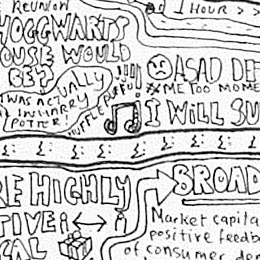 REUNION
HOGGWARTS
OUSE WOULD
BE?
I WAS ACTUALLY
IN HARRY
POTTER!
HUFFLEPUFF!
1 HOUR > >
ASAD DEF
#METOO MOME
I WILL SU
RE HIGHLY
TIVE
CAL
BROAD
Market capita
positive feedb
of consumer dem